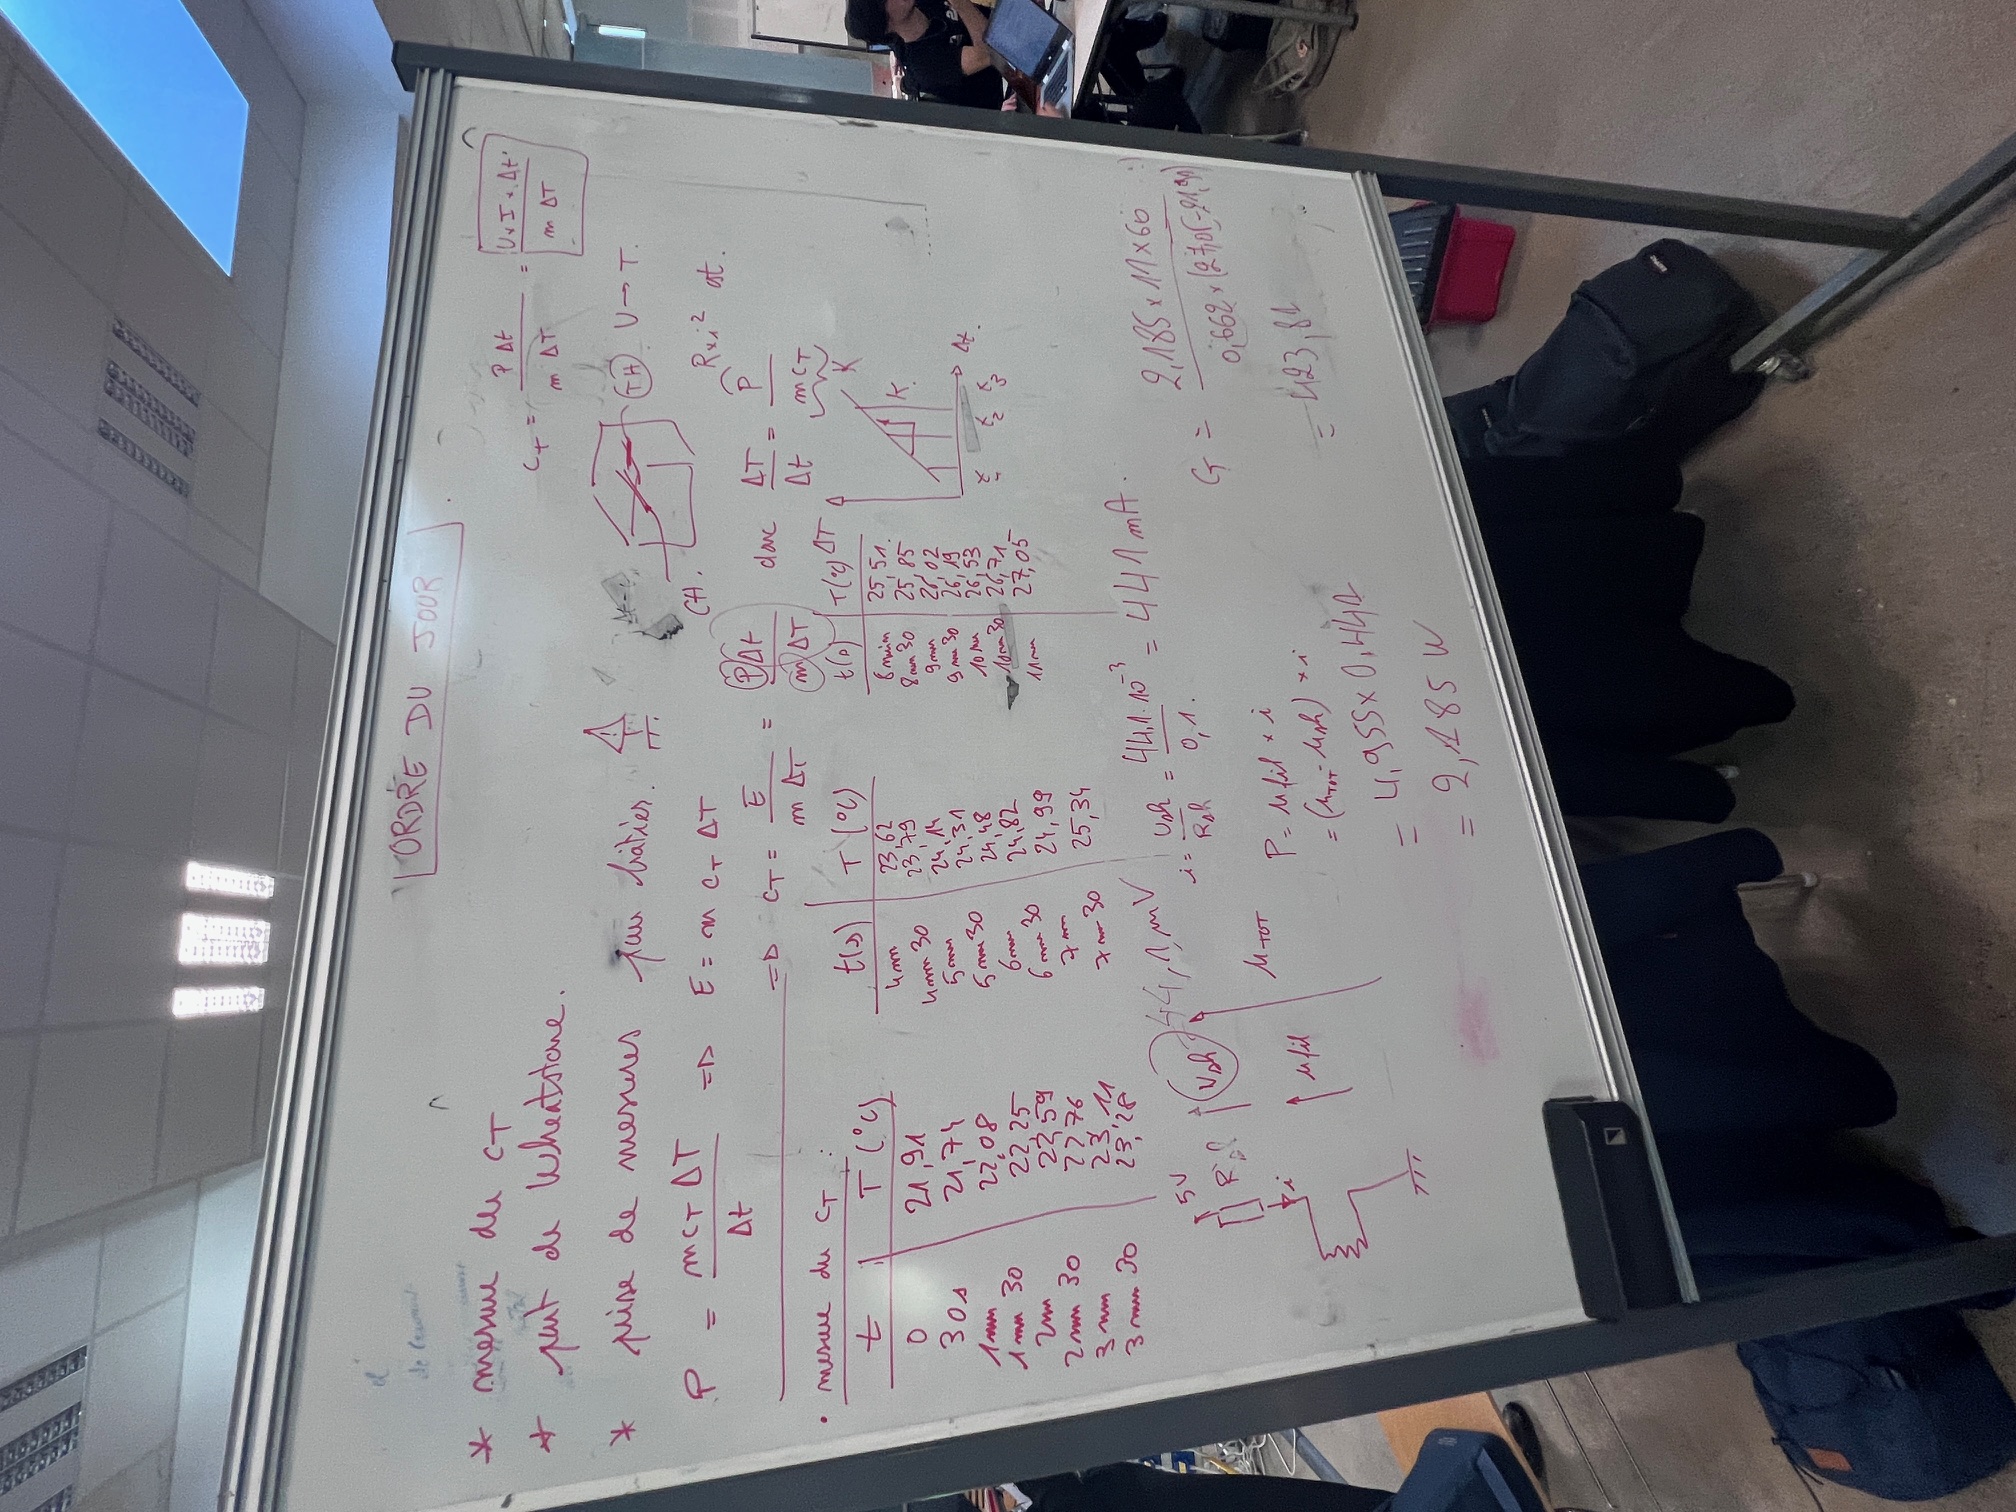 ORDRE DU JOUR
* mesure du CT
* pont de Wheatstone.
* prise de mesures par batiés.
CT = P Δt / m ΔT = U x I x Δt / m ΔT
CH.
TH U → T.
P = m CT ΔT / Δt => E = m CT ΔT
=> CT = E / m ΔT = P Δt / m ΔT donc ΔT / Δt = P / m CT
R x i² st.
• mesure du CT :
t | T (°C)
0 | 21,91
30s | 21,74
1mn | 22,08
1mn 30 | 22,25
2mn | 22,59
2mn 30 | 22,76
3mn | 23,11
3mn 30 | 23,28
t(s) | T (°C)
4mn | 23,62
4mn 30 | 23,79
5mn | 24,14
5mn 30 | 24,31
6mn | 24,48
6mn 30 | 24,82
7mn | 24,99
7mn 30 | 25,34
t(s) | T(°C)
8min | 25,51.
8mn 30 | 25,85
9mn | 26,02
9mn 30 | 26,19
10mn | 26,53
10mn 30 | 26,71
11mn | 27,05
ΔT
K
K.
Δt.
5V
Rsh
i
Ush 44,1 mV
ufil
uTOT
i = Ush / Rsh = 44,1.10⁻³ / 0,1. = 441 mA.
P = ufil x i
= (uTOT - ush) x i
= 4,955 x 0,441
= 2,185 W
CT = 2,185 x 11 x 60 / 0,662 x (27,05 - 21,91)
= 423,81